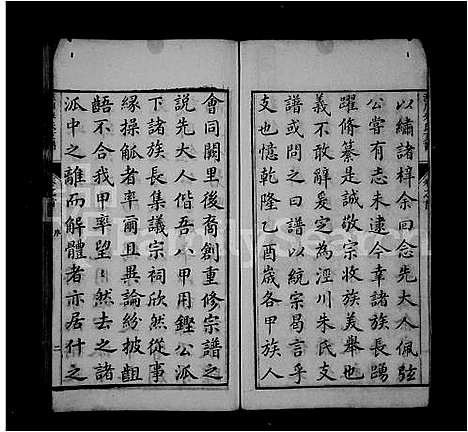 以繡諸梓余回念先大人佩弦
公嘗有志未逮今幸諸族長踴
躍脩纂是誠敬宗收族美舉也
義不敢辭爰定為涇川朱氏支
譜或問之曰譜以統宗曷言乎
支也憶乾隆乙酉歲各甲族人
會同闕里後裔創重修宗譜之
說先大人偕吾八甲用鏗公派
下諸族長集議宗祠欣然從事
緣操觚者率爾且異論紛披齟
齬不合我甲率望望然去之諸
派中之離而解體者亦居什之
序
二